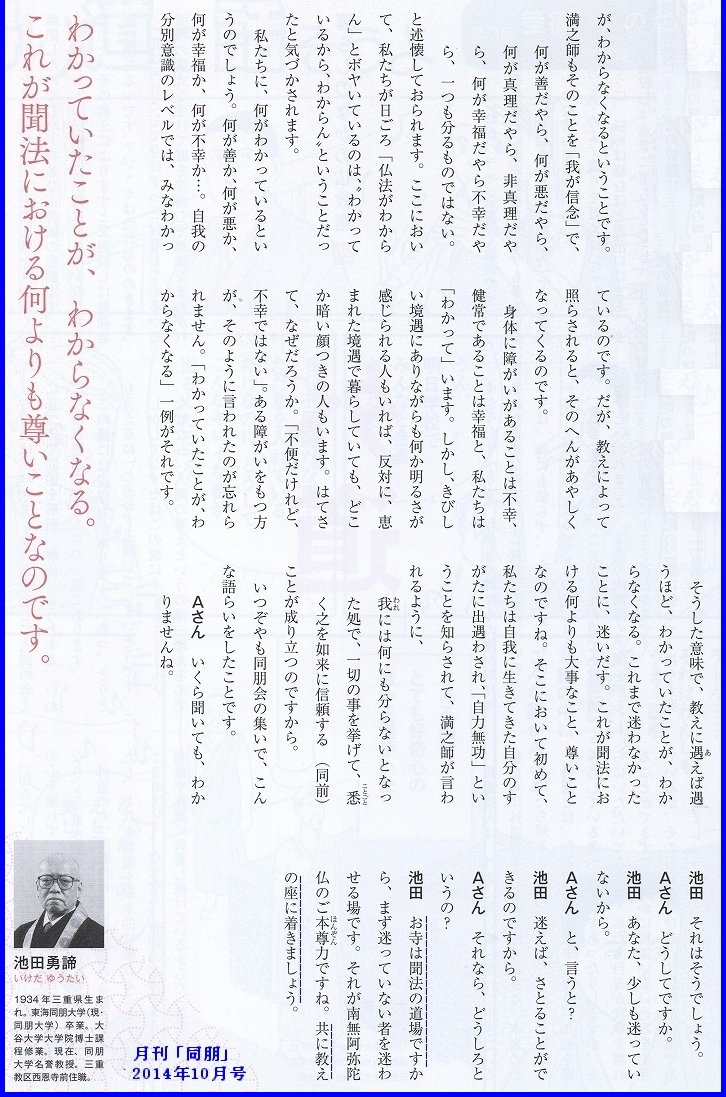 が、わからなくなるということです。
満之師もそのことを「我が信念」で、
何が善だやら、何が悪だやら、
何が真理だやら、非真理だや
ら、何が幸福だやら不幸だや
ら、一つも分るものではない。
と述懐しておられます。ここにおい
て、私たちが日ごろ「仏法がわから
ん」とボヤいているのは、〝わかって
いるから、わからん〟ということだっ
たと気づかされます。
私たちに、何がわかっているとい
うのでしょう。何が善か、何が悪か、
何が幸福か、何が不幸か…。自我の
分別意識のレベルでは、みなわかっ
ているのです。だが、教えによって
照らされると、そのへんがあやしく
なってくるのです。
身体に障がいがあることは不幸、
健常であることは幸福と、私たちは
「わかって」います。しかし、きびし
い境遇にありながらも何か明るさが
感じられる人もいれば、反対に、恵
まれた境遇で暮らしていても、どこ
か暗い顔つきの人もいます。はてさ
て、なぜだろうか。「不便だけれど、
不幸ではない」。ある障がいをもつ方
が、そのように言われたのが忘れら
れません。「わかっていたことが、わ
からなくなる」一例がそれです。
そうした意味で、教えに遇えば遇
うほど、わかっていたことが、わか
らなくなる。これまで迷わなかった
ことに、迷いだす。これが聞法にお
ける何よりも大事なこと、尊いこと
なのですね。そこにおいて初めて、
私たちは自我に生きてきた自分のす
がたに出遇わされ、「自力無功」とい
うことを知らされて、満之師が言わ
れるように、
我には何にも分らないとなっ
た処で、一切の事を挙げて、悉
く之を如来に信頼する（同前）
ことが成り立つのですから。
いつぞやも同朋会の集いで、こん
な語らいをしたことです。
Aさん いくら聞いても、わか
りませんね。
池田 それはそうでしょう。
Aさん どうしてですか。
池田 あなた、少しも迷ってい
ないから。
Aさん と、言うと？
池田 迷えば、さとることがで
きるのですから。
Aさん それなら、どうしろと
いうの？
池田 お寺は聞法の道場ですか
ら、まず迷っていない者を迷わ
せる場です。それが南無阿弥陀
仏のご本尊力ですね。共に教え
の座に着きましょう。
わかっていたことが、わからなくなる。
これが聞法における何よりも尊いことなのです。
池田勇諦
いけだ ゆうたい
1934年三重県生ま
れ。東海同朋大学（現・
同朋大学）卒業。大
谷大学大学院博士課
程修業。現在、同朋
大学名誉教授。三重
教区西恩寺前住職。
月刊「同朋」
2014年10月号